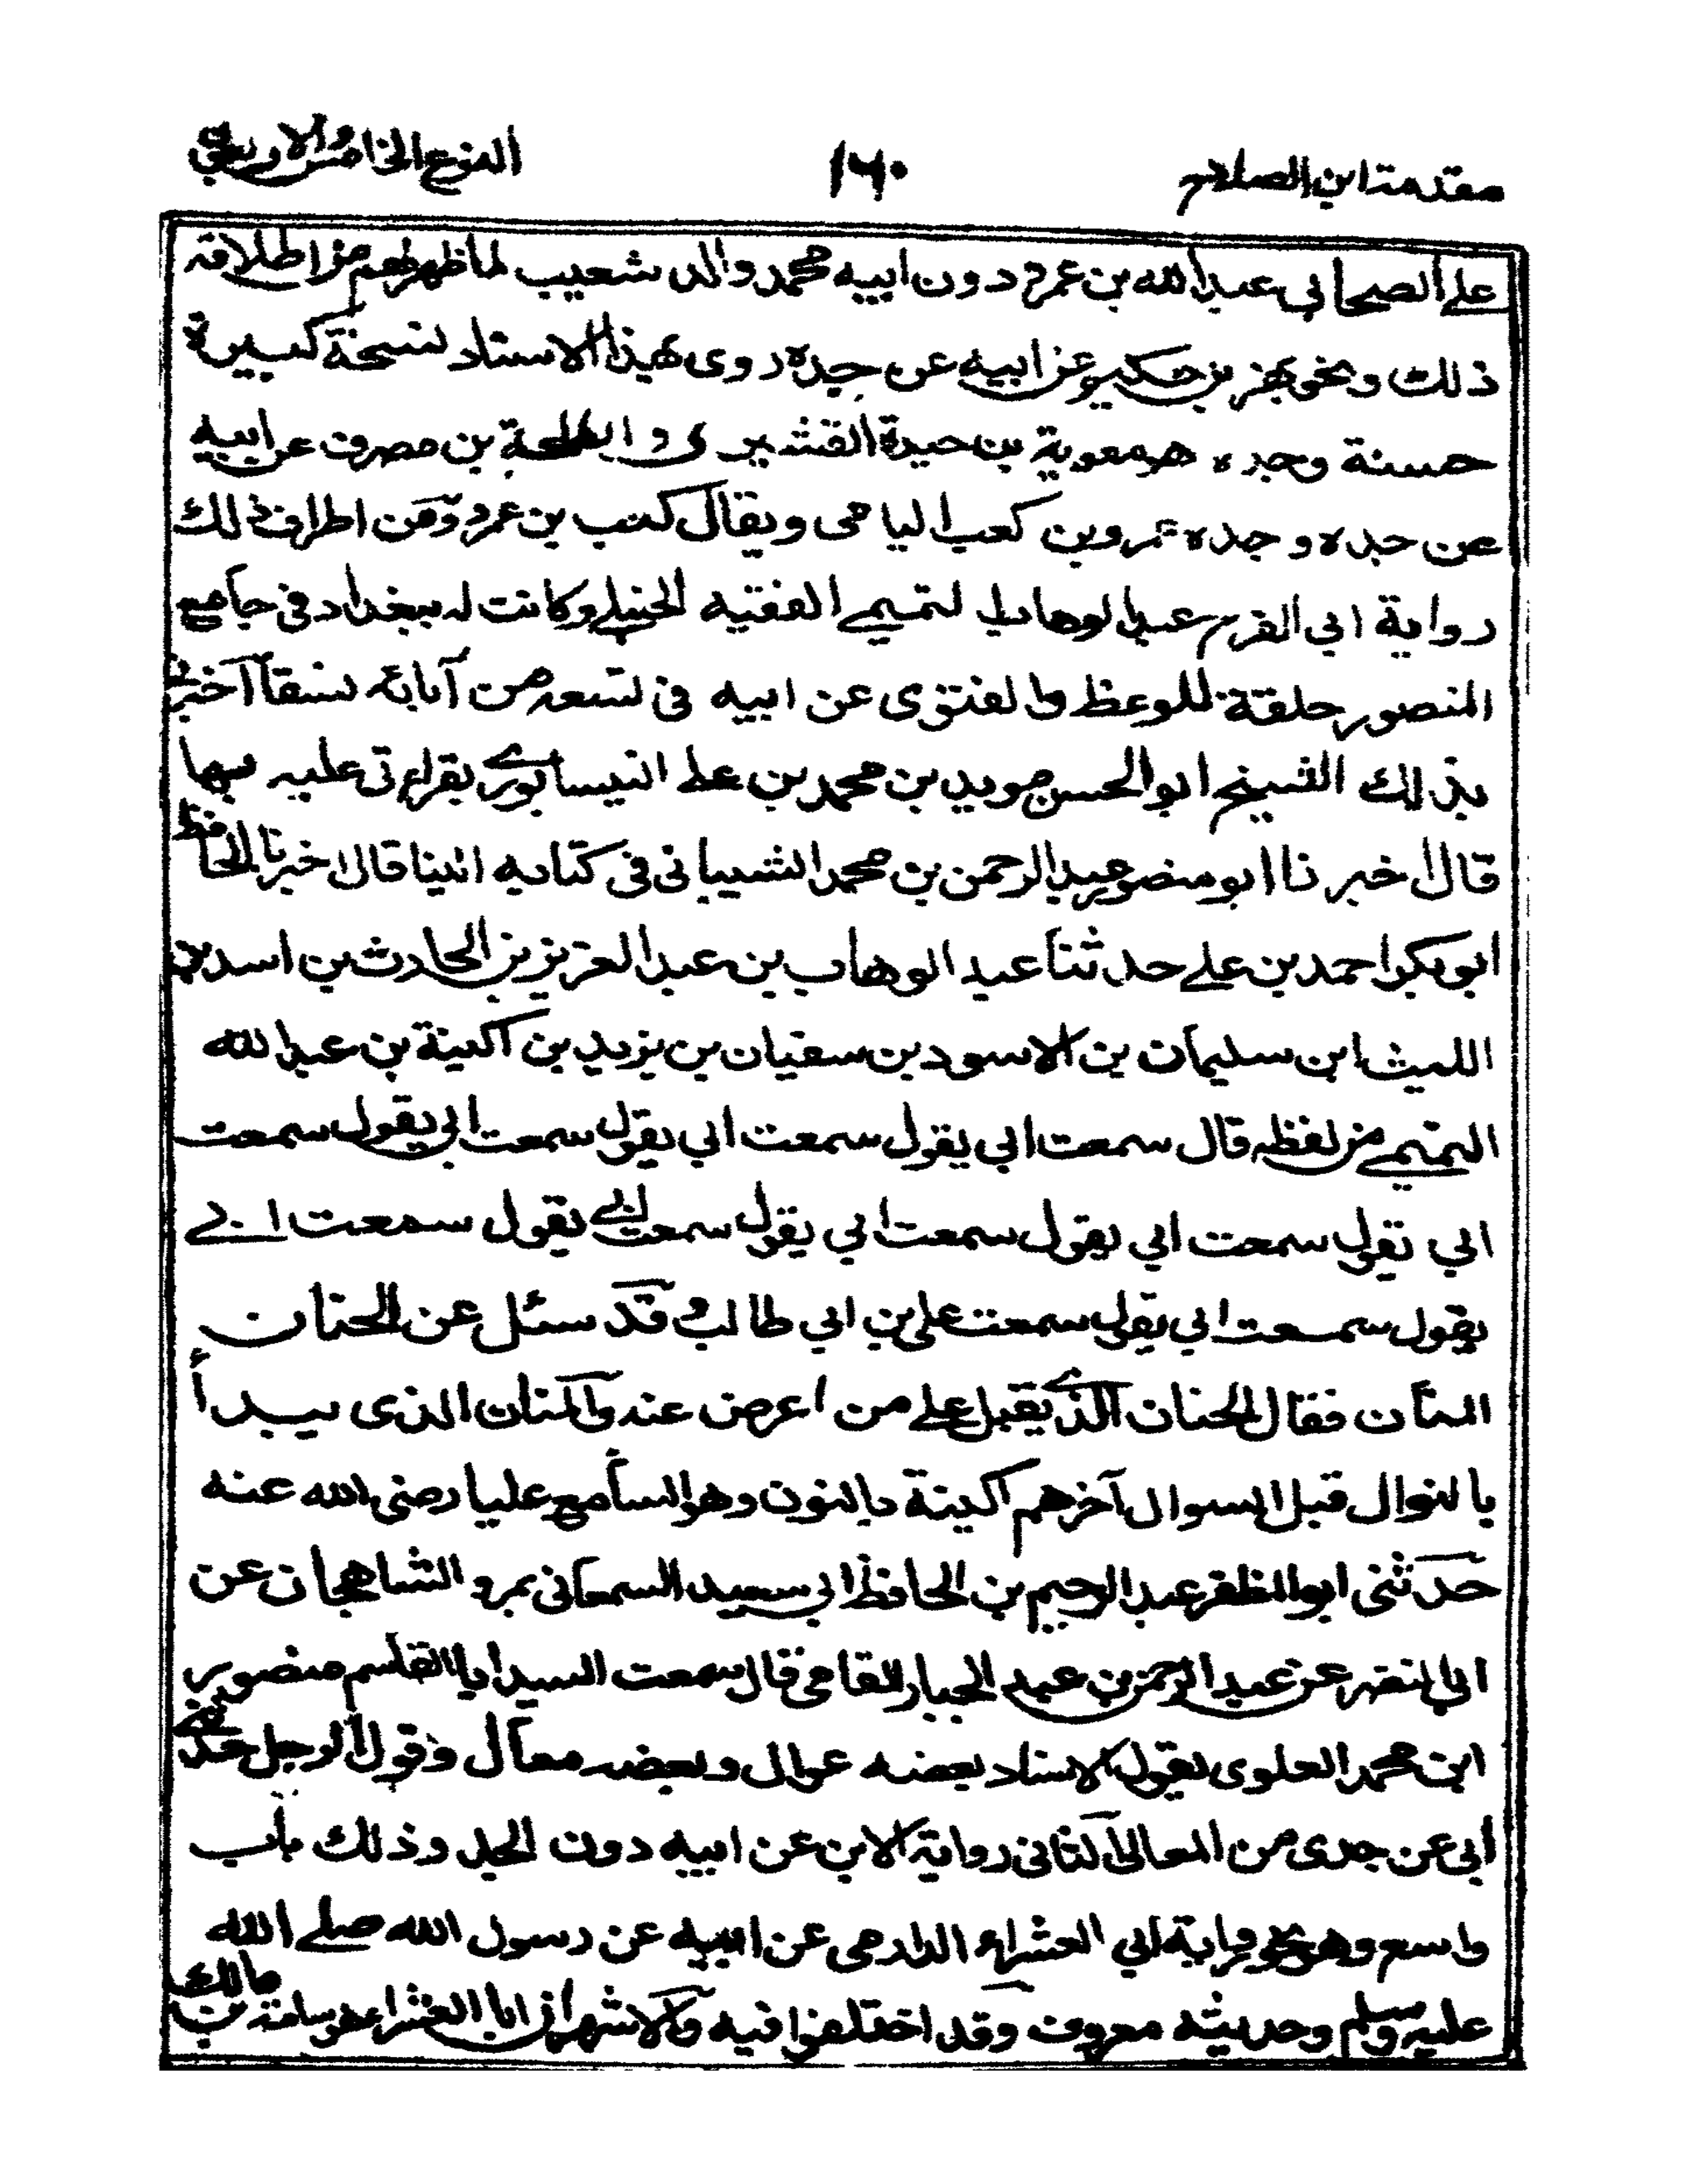 مقدمة ابن الصلاح ١٦٠ النوع الخامس والاربعون
على الصحابي عبد الله بن عمرو دون ابيه محمد والد شعيب لما ظهر لهم من اطلاقه
ذلك ونحو بهز بن حكيم عن ابيه عن جده روى بهذا الاسناد نسخة كبيرة
حسنة وجده هو معوية بن حيدة القشيري و طلحة بن مصرف عن ابيه
عن جده وجده عمرو بن كعب اليامى ويقال كعب بن عمرو ومن اطراف ذلك
رواية ابي الفرج عبد الوهاب التميمي الفقيه الحنبلي وكانت له ببغداد في جامع
المنصور حلقة للوعظ والفتوى عن ابيه في تسعة من آبائه نسقا اخبرني
بذلك الشيخ ابو الحسن مويد بن محمد بن على النيسابوري بقراءتي عليه بها
قال اخبرنا ابو منصور عبد الرحمن بن محمد الشيباني في كتابه الينا قال اخبرنا الحافظ
ابو بكر احمد بن على حدثنا عبد الوهاب بن عبد العزيز بن الحارث بن اسد بن
الليث ابن سليمان بن الاسود بن سفيان بن يزيد بن اكينة بن عبد الله
التميمي من لفظه قال سمعت ابي يقول سمعت ابي يقول سمعت ابي يقول سمعت
ابي يقول سمعت ابي يقول سمعت ابي يقول سمعت ابي يقول سمعت ابي
يقول سمعت ابي يقول سمعت على بن ابي طالب وقد سئل عن الحنان
المنان فقال الحنان الذي يقبل على من اعرض عنه والمنان الذى يبدأ
بالنوال قبل السوال آخرهم اكينة بالنون وهو السامع عليا رضى الله عنه
حدثنى ابو المظفر عبد الرحيم بن الحافظ ابي سعيد السمعانى بمرو الشاهجان عن
ابي النضر عن عبد الرحمن بن عبد الجبار الفامى قال سمعت السيد ابا القاسم منصور
ابن محمد العلوى يقول الاسناد بعضه عوال وبعضه معال وقول الرجل حدثني
أبي عن جدى من المعالى الثانى رواية الابن عن ابيه دون الجد وذلك باب
واسع وهو نحو رواية ابي العشراء الدارمى عن ابيه عن رسول الله صلى الله
عليه وسلم وحديثه معروف وقد اختلفوا فيه والاشهر ان ابا العشراء هو اسامة بن مالك